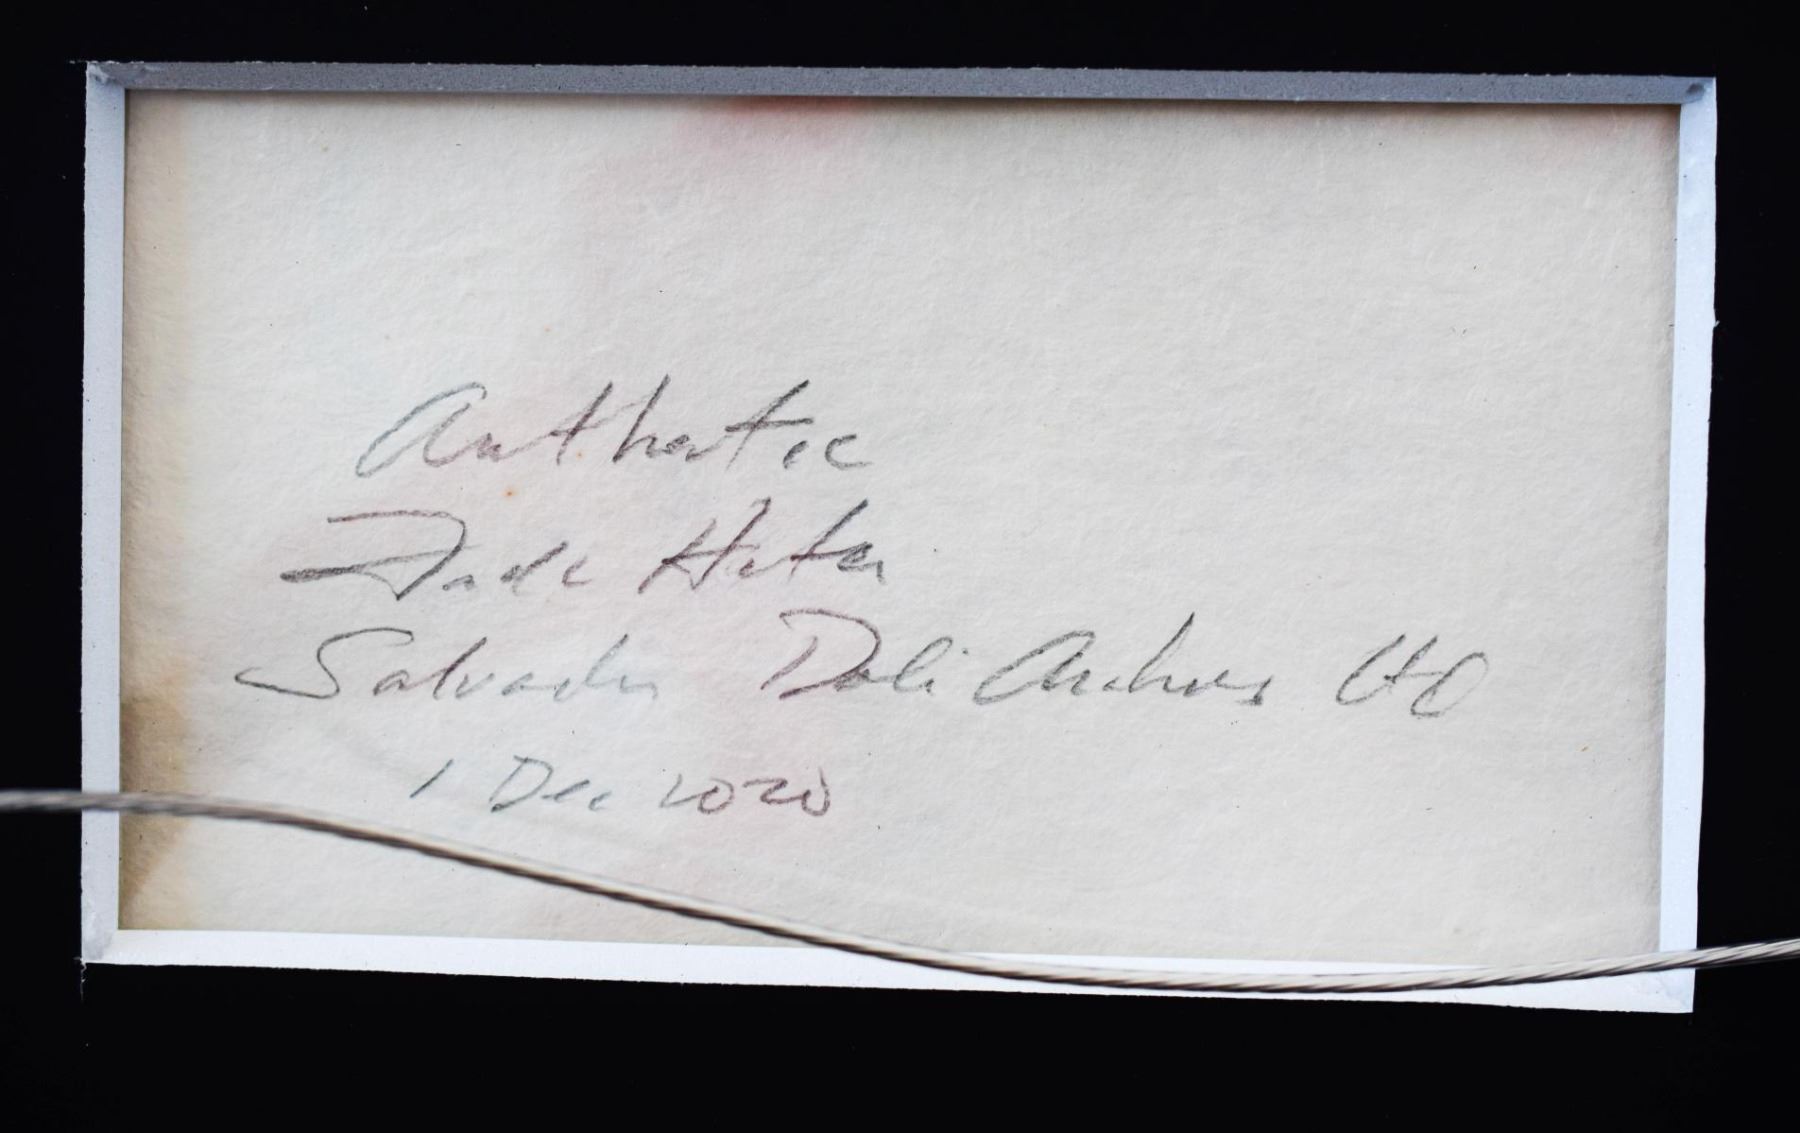 Authentic
Frank Hunter
Salvador Dali Archives Ltd
1 Dec 2020